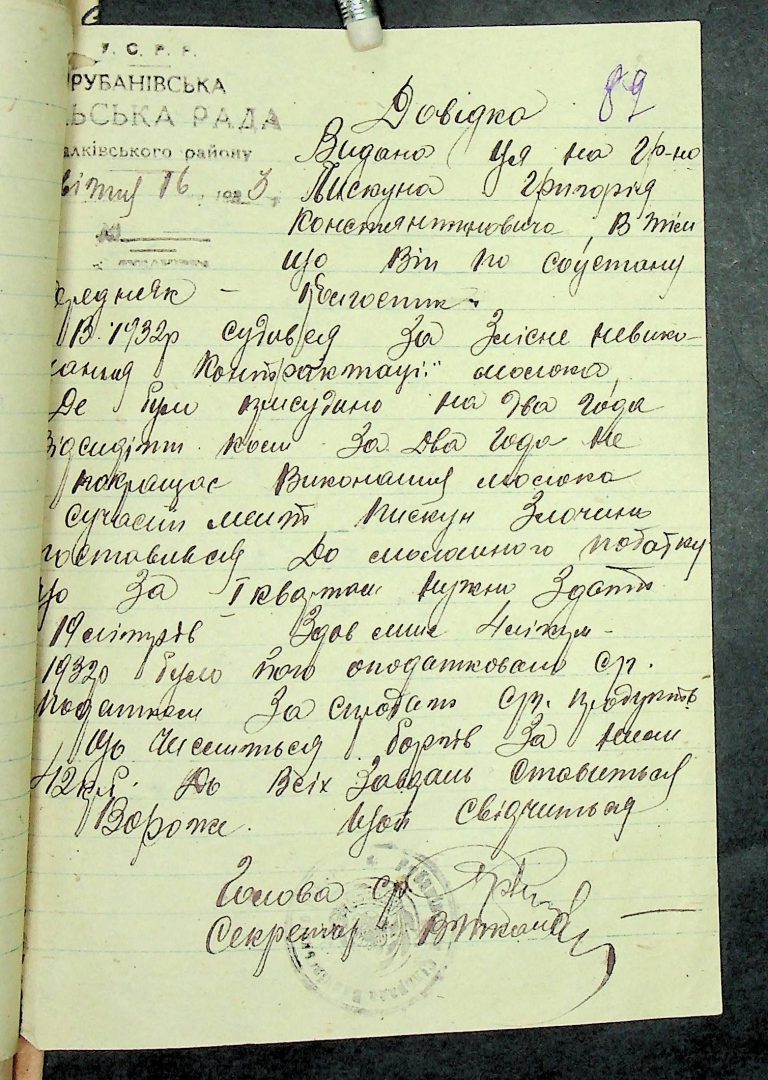 У. С. Р. Р.
РУБАНІВСЬКА
ЛЬСЬКА РАДА
алківського району
вітня 16 193 3 р
89
Довідка
Видана ця на гр-на
Пискуна Григорія
Константиновича в тім
що він по соцстану
середняк –
В 1932р судився за злісне невико-
нання контрактації молока
де було присудино на два года
відсидіти коли за два года не
покращає виконання молока
сучасний мент Пискун злочинно
поставився до молошного податку
що за І квартал нужно здати
19 літрів здав лише 4 літри –
1932р було його оподатковано ср.
податком за продаж ср. продуктів
що числиться боргів за ним
42 крб. До всіх завдань ставиться
вороже. що й свідчиться
Голова с/р.
Секретар